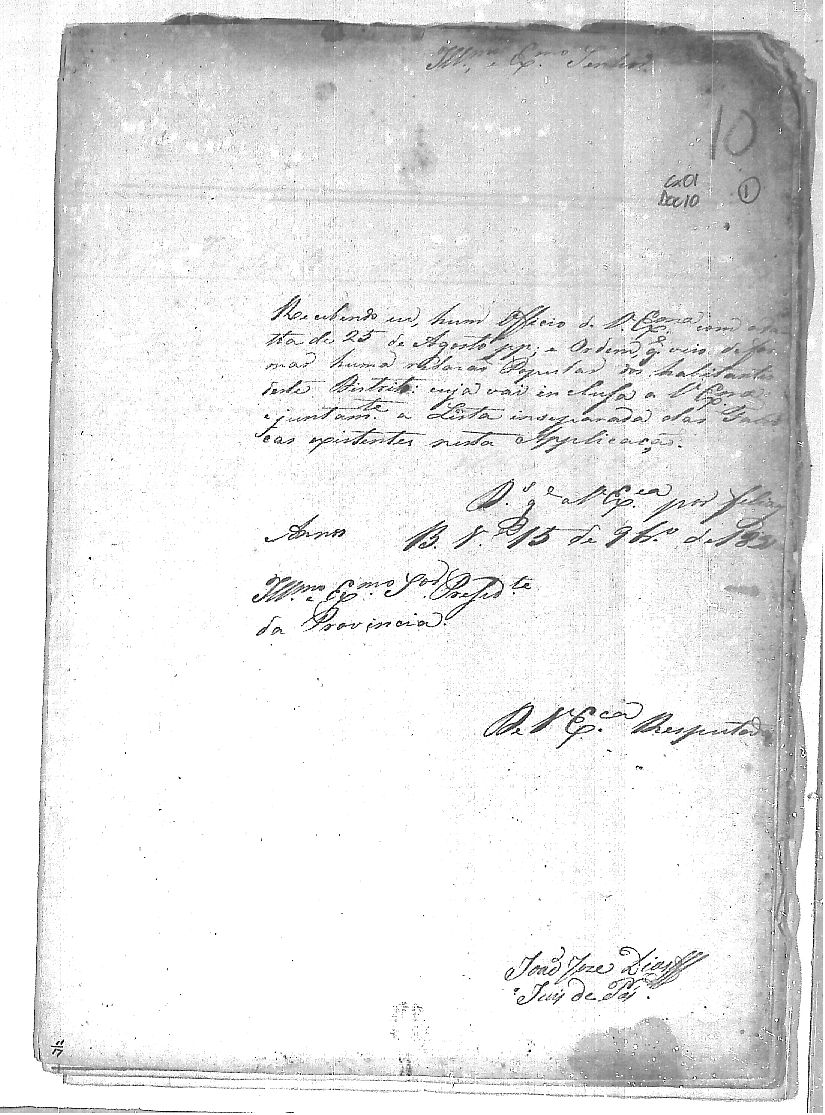 Ill.mo e Ex.mo Senhor
10
Cx01
Doc10
1
Recebendo eu, hum Officio de V. Ex.cia com a da
tta de 25 de Agosto pp; e Ordem q.e veio de for
mar huma relacao Popular dos habitantes
deste Districto: cuja vai inclusa a V. Ex.cia
e juntam.te a Lista inseparada das
cas existentes nesta Applicaçaõ.
D.s g.e a V. Ex.cia por felizes
Annos B. V. 15 de 9br.o de 183
Ill.mo e Ex.mo Snr Presid.te
da Provincia.
De V. Ex.cia
Joaõ Joze Dias
Juis de Pas.